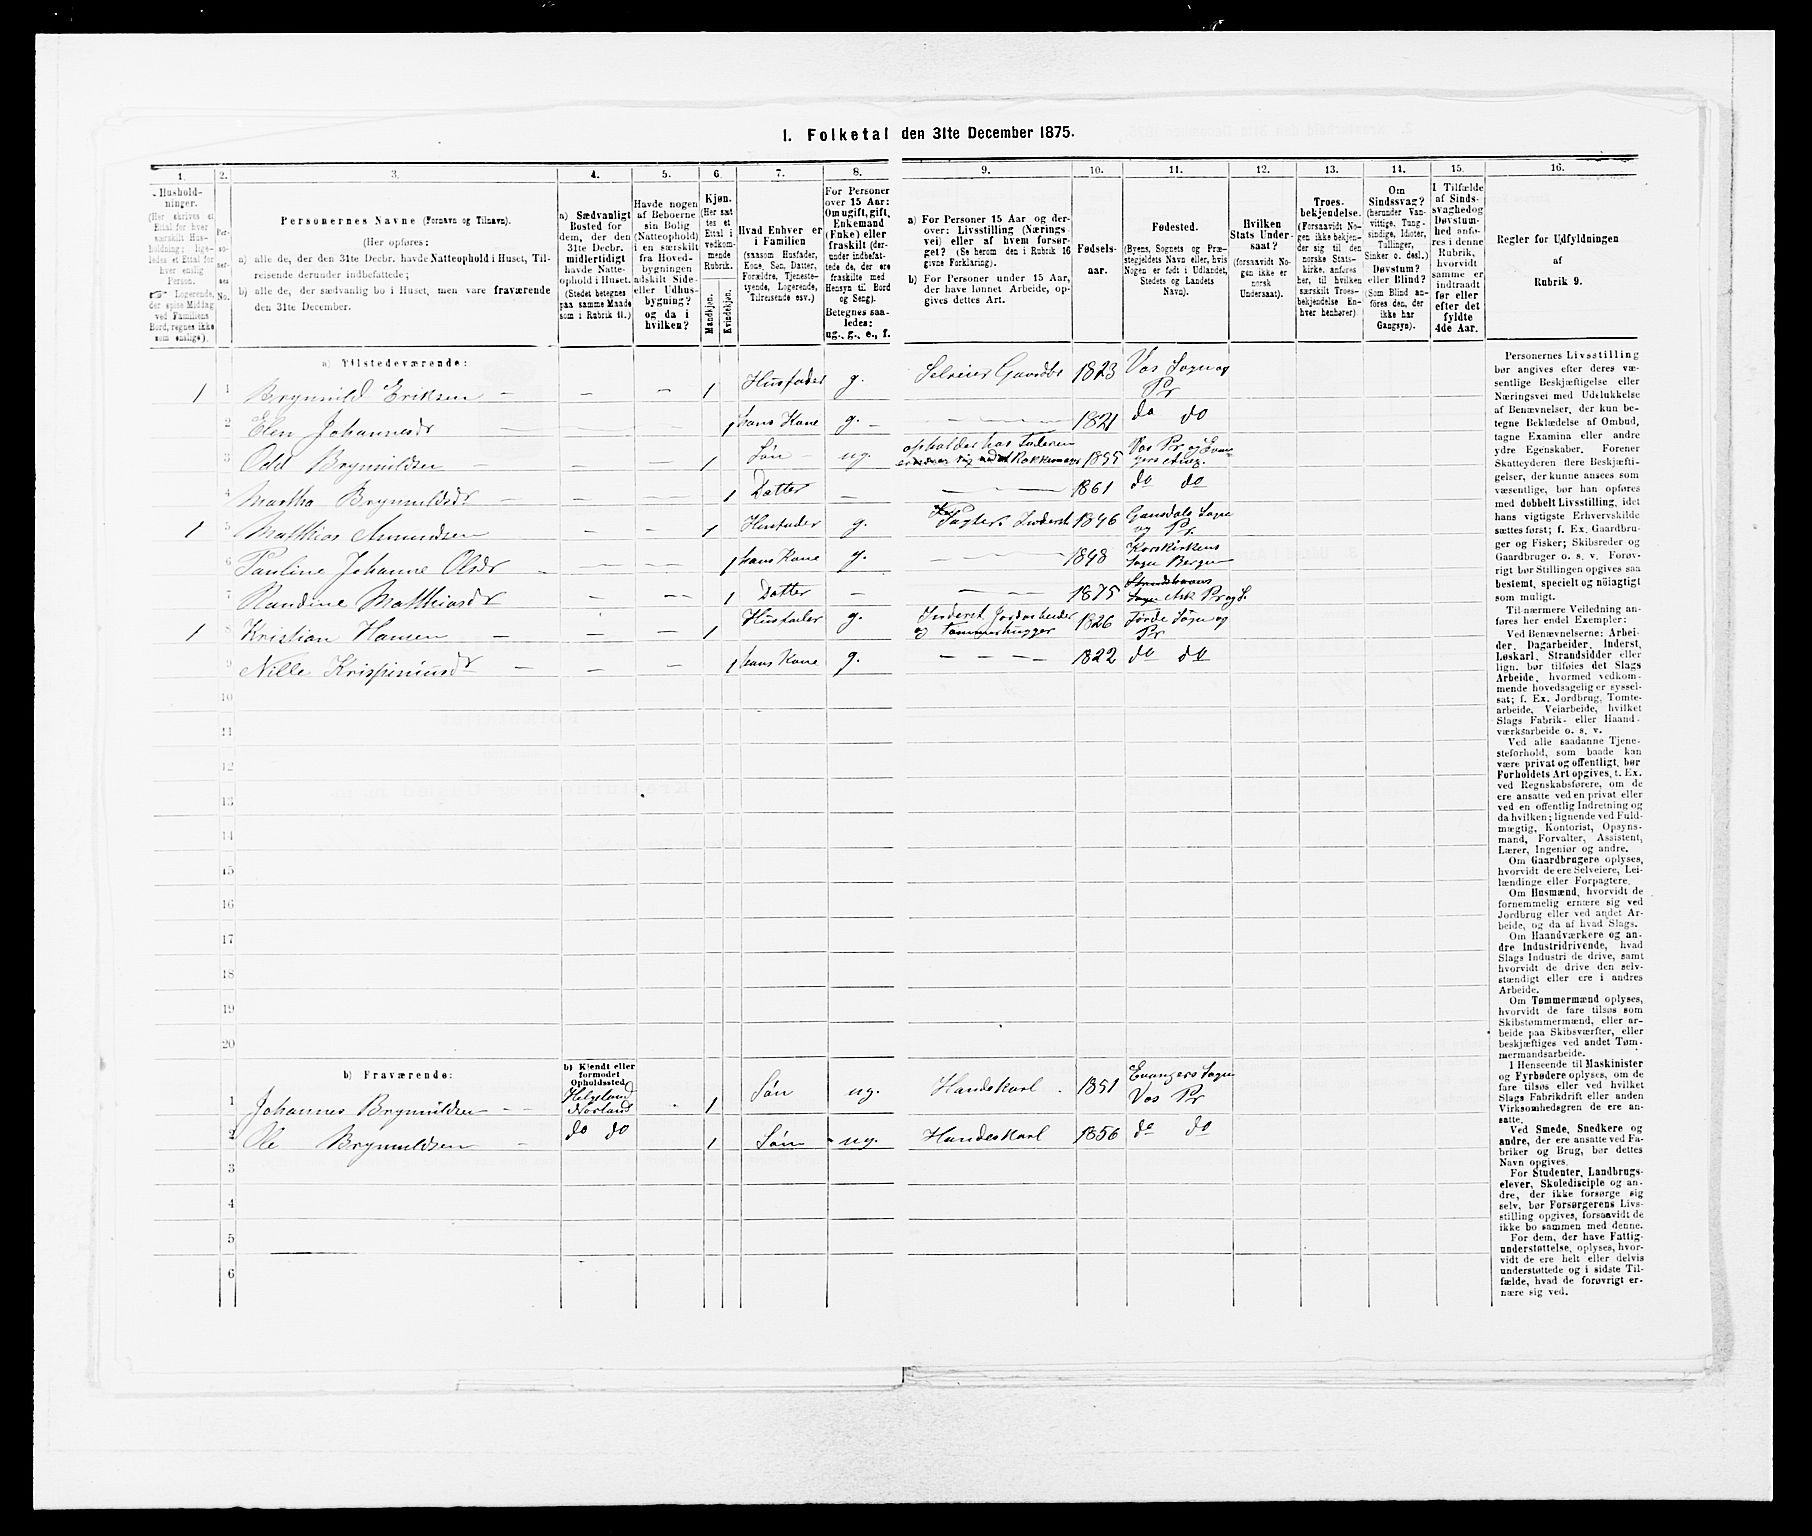 1. Folketal den 31te December 1875.
1. 2. 3. 4. 5. 6. 7. 8. 9. 10. 11. 12. 13. 14. 15. 16.
Hushold-
ninger.
(Her skrives et
Ettal for hver
særskilt Hus-
holdning; lige-
ledes et Ettal for
hver enslig
Person.
☞ Logerende,
der spise Middag
ved Familiens
Bord, regnes ikke
som enslige).
Per-
so-
ner-
nes
No.
Personernes Navne (Fornavn og Tilnavn).
(Her opføres:
a) alle de, der den 31te Decbr. havde Natteophold i Huset, Til-
reisende derunder indbefattede;
b) alle de, der sædvanlig bo i Huset, men vare fraværende
den 31te December.
a) Sædvanligt
Bosted for
dem, der den
31te Decbr.
midlertidigt
havde Natte-
ophold i Huset.
(Stedet betegnes
paa samme Maade
som i Rubrik 11.)
Havde nogen
af Beboerne
sin Bolig
(Natteophold)
i en særskilt
fra Hoved-
bygningen
adskilt Side-
eller Udhus-
bygning?
og da i
hvilken?
Kjøn.
(Her sæt
tes et
Ettal i
vedkom-
mende
Rubrik.
Mandkjøn.
Kvindekjøn.
Hvad Enhver er
i Familien
(saasom Husfader,
Kone, Søn, Datter,
Forældre, Tjeneste-
tyende, Logerende,
Tilreisende osv.)
For Personer
over 15 Aar:
Om ugift, gift,
Enkemand
(Enke) eller
fraskilt (der-
under indbefat-
tede de, der ere
fraskilte med
Hensyn til Bord
og Seng).
Betegnes saa-
ledes:
ug., g., e., f.
a) For Personer 15 Aar og der-
over: Livsstilling (Nærings-
vei) eller af hvem forsør-
get? (Se herom den i Rubrik 16
givne Forklaring).
b) For Personer under 15 Aar,
der have lønnet Arbeide, op-
gives dettes Art.
Fødsels-
aar.
Fødested.
(Byens, Sognets og Præ-
stegjeldets Navn eller, hvis
Nogen er født i Udlandet,
Stedets og Landets
Navn).
Hvilken
Stats Under-
saat?
(forsaavidt No-
gen ikke er
norsk
Undersaat).
Troes-
bekjendelse.
(Forsaavidt No-
gen ikke bekjen-
der sig til den
norske Stats-
kirke, anføres
her, til hvilken
særskilt Troes-
bekjendelse En-
hver henhører)
Om
Sindssvag?
(herunder Van-
vittige, Tung-
sindige, Idioter,
Tullinger,
Sinker o. desl.)
Døvstum?
eller Blind?
(Som Blind an-
føres den, der
ikke har
Gangsyn).
I Tilfælde
af Sinds-
svaghed og
Døvstum-
hed anfø-
res i denne
Rubrik,
hvorvidt
samme er
indtraadt
før eller
efter det
fyldte
4de Aar.
Regler for Udfyldningen
af
Rubrik 9.
a) Tilstedeværende:
1 1 Brynnild Eriksen — — — 1 Husfader g. Selveier Gaardbr 1823 Vos Sogn og Pr
2 Elen Johannesdr — — — 1 hans Kone g. — — — 1821 do do
3 Odd Brynnildsen — — — 1 Søn ug. opholder hos Faderen 1855 Vos Pr og Evan-
gers
4 Martha Brynnildsdr — — — 1 Datter — — — — 1861 do do
1 5 Matthias Amundsen — — 1 Husfader g. Inderst 1846 Sogn
og Pr.
6 Pauline Johanne Olsdr — — — 1 hans Kone g. — — — 1848 Korskirkens
Sogn Bergen
7 Randine Matthiasdr — — 1 Datter — — — — 1875 Ask Pr og S.
1 8 Kristian Hansen — — — 1 Husfader g. Inderst Jordarbeider
og Tømmerhugger 1826 Førde Sogn og
Pr
9 Nille Krispiniusdr — — — 1 hans Kone g. — — — 1822 do do
10
11
12
13
14
15
16
17
18
19
20
b) Fraværende:
b) Kjendt eller
formodet
Opholdssted.
1 Johannes Brynnildsen — — Helgeland
Norland 1 Søn ug. Handskarl 1851 Evangers Sogn
Vos Pr
2 Ole Brynnildsen — do do 1 Søn ug. Handeskarl 1856 do do
3
4
5
6
Personernes Livsstilling
bør angives efter deres væ-
sentlige Beskjæftigelse eller
Næringsvei med Udelukkelse
af Benævnelser, der kun be-
tegne Beklædelse af Ombud,
tagne Examina eller andre
ydre Egenskaber. Forener
Skatteyderen flere Beskjæfti-
gelser, der kunne ansees som
væsentlige, bør han opføres
med dobbelt Livsstilling, idet
hans vigtigste Erhvervskilde
sættes først; f. Ex. Gaardbru-
ger og Fisker; Skibsreder og
Gaardbruger o. s. v. Forøv-
rigt bør Stillingen opgives saa
bestemt, specielt og nöiagtigt
som muligt.
Til nærmere Veiledning an-
føres her endel Exempler:
Ved Benævnelserne: Arbei-
der, Dagarbeider, Inderst,
Løskarl, Strandsidder eller
lign. bør tilføies det Slags
Arbeide, hvormed vedkom-
mende hovedsagelig er syssel-
sat; f. Ex. Jordbrug, Tomte-
arbeide, Veiarbeide, hvilket
Slags Fabrik- eller Haand-
værksarbeide o. s. v.
Ved alle saadanne Tjene-
steforhold, som baade kan
være privat og offentligt, bør
Forholdets Art opgives, t. Ex.
ved Regnskabsførere, om de
ere ansatte ved en privat eller
ved en offentlig Indretning og
da hvilken; lignende ved Fuld-
mægtig, Kontorist, Opsyns-
mand, Forvalter, Assistent,
Lærer, Ingeniør og andre.
Om Gaardbrugere oplyses,
hvorvidt de ere Selveiere, Lei-
lændinge eller Forpagtere.
Om Husmænd, hvorvidt de
fornemmelig ernære sig ved
Jordbrug eller ved andet Ar-
beide, og da af hvad Slags.
Om Haandværkere og an-
dre Industridrivende, hvad
Slags Industri de drive, samt
hvorvidt de drive den selv-
stændigt eller ere i andres
Arbeide.
Om Tømmermænd oplyses,
hvorvidt de fare tilsøs som
Skibstømmermænd, eller ar-
beide paa Skibsværfter, eller
beskjæftiges ved andet Tøm-
mermandsarbeide.
I Henseende til Maskinister
og Fyrbødere oplyses, om de
fare tilsøs eller ved hvilket
Slags Fabrikdrift eller anden
Virksomhedsgren de ere an-
satte.
Ved Smede, Snedkere og
andre, der ere ansatte ved Fa-
briker og Brug, bør dettes
Navn opgives.
For Studenter, Landbrugs-
elever, Skoledisciple og an-
dre, der ikke forsørge sig
selv, bør Forsørgerens Livs-
stilling opgives, forsaavidt de
ikke bo sammen med denne.
For dem, der have Fattig-
understøttelse, oplyses, hvor-
vidt de ere helt eller delvis
understøttede og i sidste Til-
fælde, hvad de forøvrigt er-
nære sig ved.